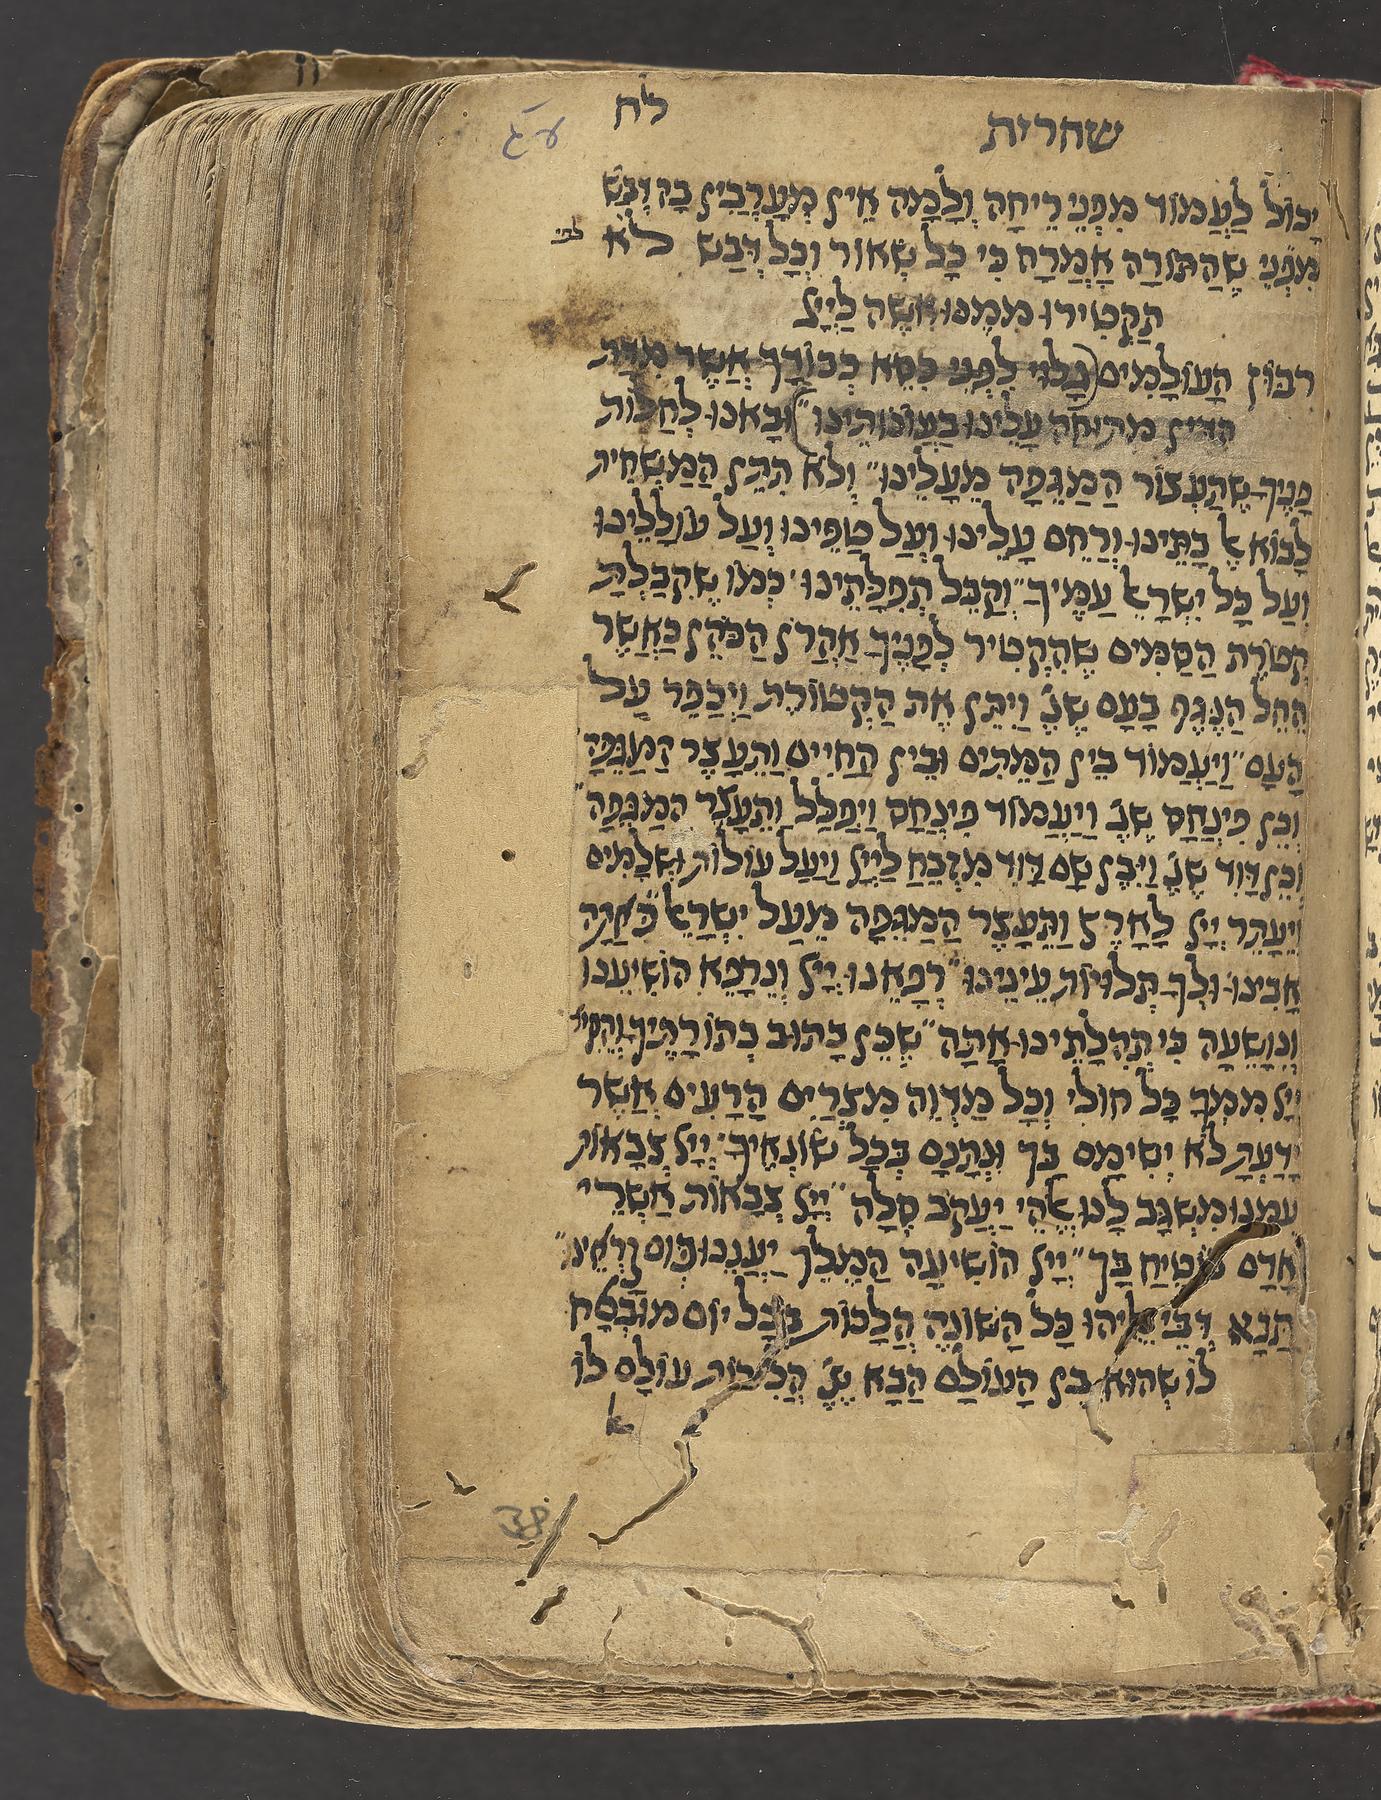 לח
שחרית
יָכוֹל לַעֲמוֹד מִפְּנֵי רֵיחָהּ וְלָמָּה אֵין מְעָרְבִין בָּהּ דְּבַשׁ
מִפְּנֵי שֶׁהַתּוֹרָה אָמְרָה כִּי כָל שְׂאוֹר וְכָל דְּבַשׁ לֹא
תַקְטִירוּ מִמֶּנּוּ אִשֶּׁה לַיְיָ
רִבּוֹן הָעוֹלָמִים (גָּלוּי לִפְנֵי כִסֵּא כְבוֹדָךְ אֲשֶׁר מִדַּת
הַדִּין מְתוּחָה עָלֵינוּ בַּעֲוֹנוֹתֵינוּ) וּבָאנוּ לְחַלּוֹת
פָּנֶיךָ שֶׁתַּעְצוֹר הַמַּגֵּפָה מֵעָלֵינוּ וְלֹא תִתֵּן הַמַּשְׁחִית
לָבוֹא אֶל בָּתֵּינוּ וְרַחֵם עָלֵינוּ וְעַל טַפֵּינוּ וְעַל עוֹלָלֵינוּ
וְעַל כָּל יִשְׂרָאֵל עַמֶּיךָ וְקַבֵּל תְּפִלָּתֵינוּ כְּמוֹ שֶׁקִּבַּלְתָּ
קְטֹרֶת הַסַּמִּים שֶׁהִקְטִיר לְפָנֶיךָ אַהֲרֹן הַכֹּהֵן כַּאֲשֶׁר
הֵחֵל הַנֶּגֶף בָּעָם שֶׁנֶּ' וַיִּתֵּן אֶת הַקְּטוֹרֶת וַיְכַפֵּר עַל
הָעָם וַיַּעֲמוֹד בֵּין הַמֵּתִים וּבֵין הַחַיִּים וַתֵּעָצַר הַמַּגֵּפָה
וְכֵן פִּינְחָס שֶׁנֶּ' וַיַּעֲמוֹד פִּינְחָס וַיְפַלֵּל וַתֵּעָצַר הַמַּגֵּפָה
וְכֵן דָּוִד שֶׁנֶּ' וַיִּבֶן שָׁם דָּוִד מִזְבֵּחַ לַיְיָ וַיַּעַל עוֹלוֹת וּשְׁלָמִים
וַיֵּעָתֵר יְיָ לָאָרֶץ וַתֵּעָצַר הַמַּגֵּפָה מֵעַל יִשְׂרָאֵל
אָבִינוּ וּלְךָ תְּלוּיוֹת עֵינֵינוּ רְפָאֵנוּ יְיָ וְנֵרָפֵא הוֹשִׁיעֵנוּ
וְנִוָּשֵׁעָה כִּי תְהִלָּתֵינוּ אָתָּה שֶׁכֵּן כָּתוּב בְּתוֹרָתֶיךָ וְהֵסִיר
יְיָ מִמְּךָ כָּל חוֹלִי וְכָל מַדְוֵה מִצְרַיִם הָרָעִים אֲשֶׁר
יָדַעְתָּ לֹא יְשִׂימָם בָּךְ וּנְתָנָם בְּכָל שׂוֹנְאֶיךָ יְיָ צְבָאוֹת
עִמָּנוּ מִשְׂגָּב לָנוּ אֱלֹהֵי יַעֲקֹב סֶלָה יְיָ צְבָאוֹת אַשְׁרֵי
אָדָם בֹּטֵיחַ בָּךְ יְיָ הוֹשִׁיעָה הַמֶּלֶךְ יַעֲנֵנוּ בְיוֹם קָרְאֵינוּ
תָּנָא דְבֵי אֵלִיָּהוּ כָּל הַשּׁוֹנֶה הֲלָכוֹת בְּכָל יוֹם מוּבְטָח
לוֹ שֶׁהוּא בֶן הָעוֹלָם הַבָּא שֶׁנֶּ' הֲלִיכוֹת עוֹלָם לוֹ
38